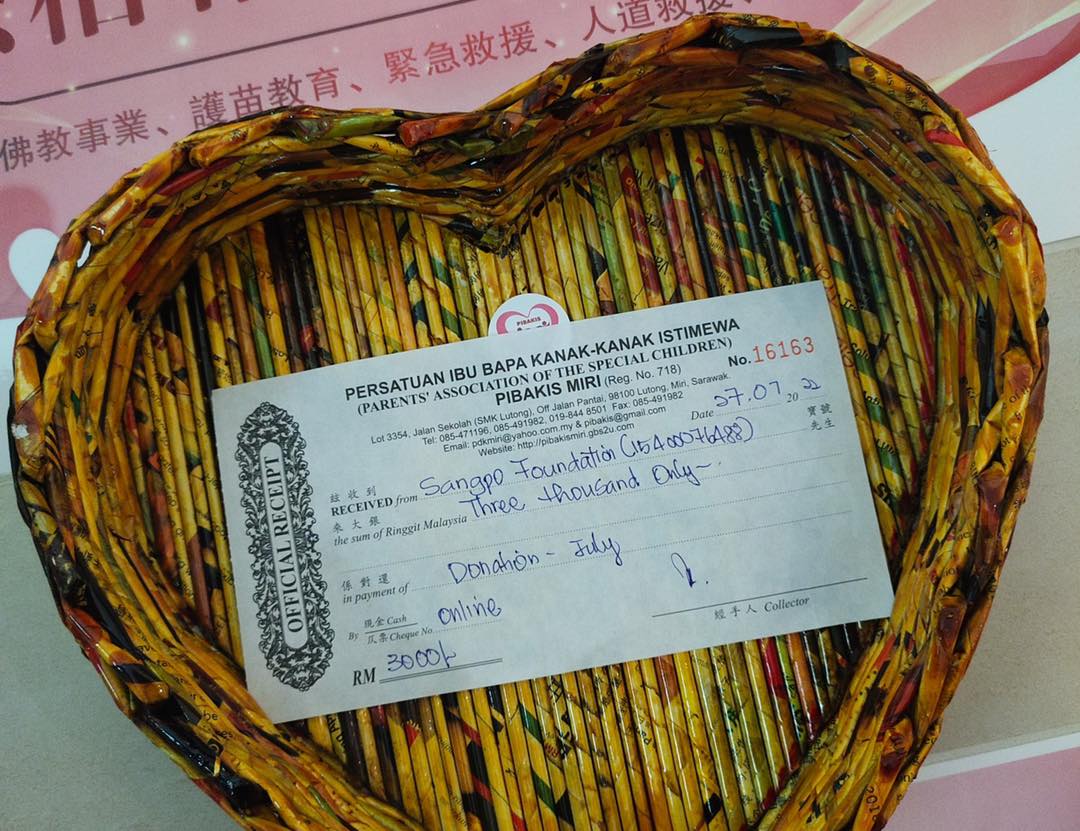 佛教事業、護苗教育、緊急救援、人道救援、
PIBAKIS
PERSATUAN IBU BAPA KANAK-KANAK ISTIMEWA
(PARENTS' ASSOCIATION OF THE SPECIAL CHILDREN)
PIBAKIS MIRI (Reg. No. 718)
No. 16163
Lot 3354, Jalan Sekolah (SMK Lutong), Off Jalan Pantai, 98100 Lutong, Miri, Sarawak.
Tel: 085-471196, 085-491982, 019-844 8501 Fax: 085-491982
Email: pdkmiri@yahoo.com.my & pibakis@gmail.com
Website: http://pibakismiri.gbs2u.com
Date 27.07.2022
OFFICIAL RECEIPT
茲收到 寶號
RECEIVED from Sangpo Foundation (15400076488) 先生
來大銀
the sum of Ringgit Malaysia Three thousand Only-
係對還
in payment of Donation - July
現金 Cash
By 仄票 Cheque No. online
經手人 Collector
RM 3000/-